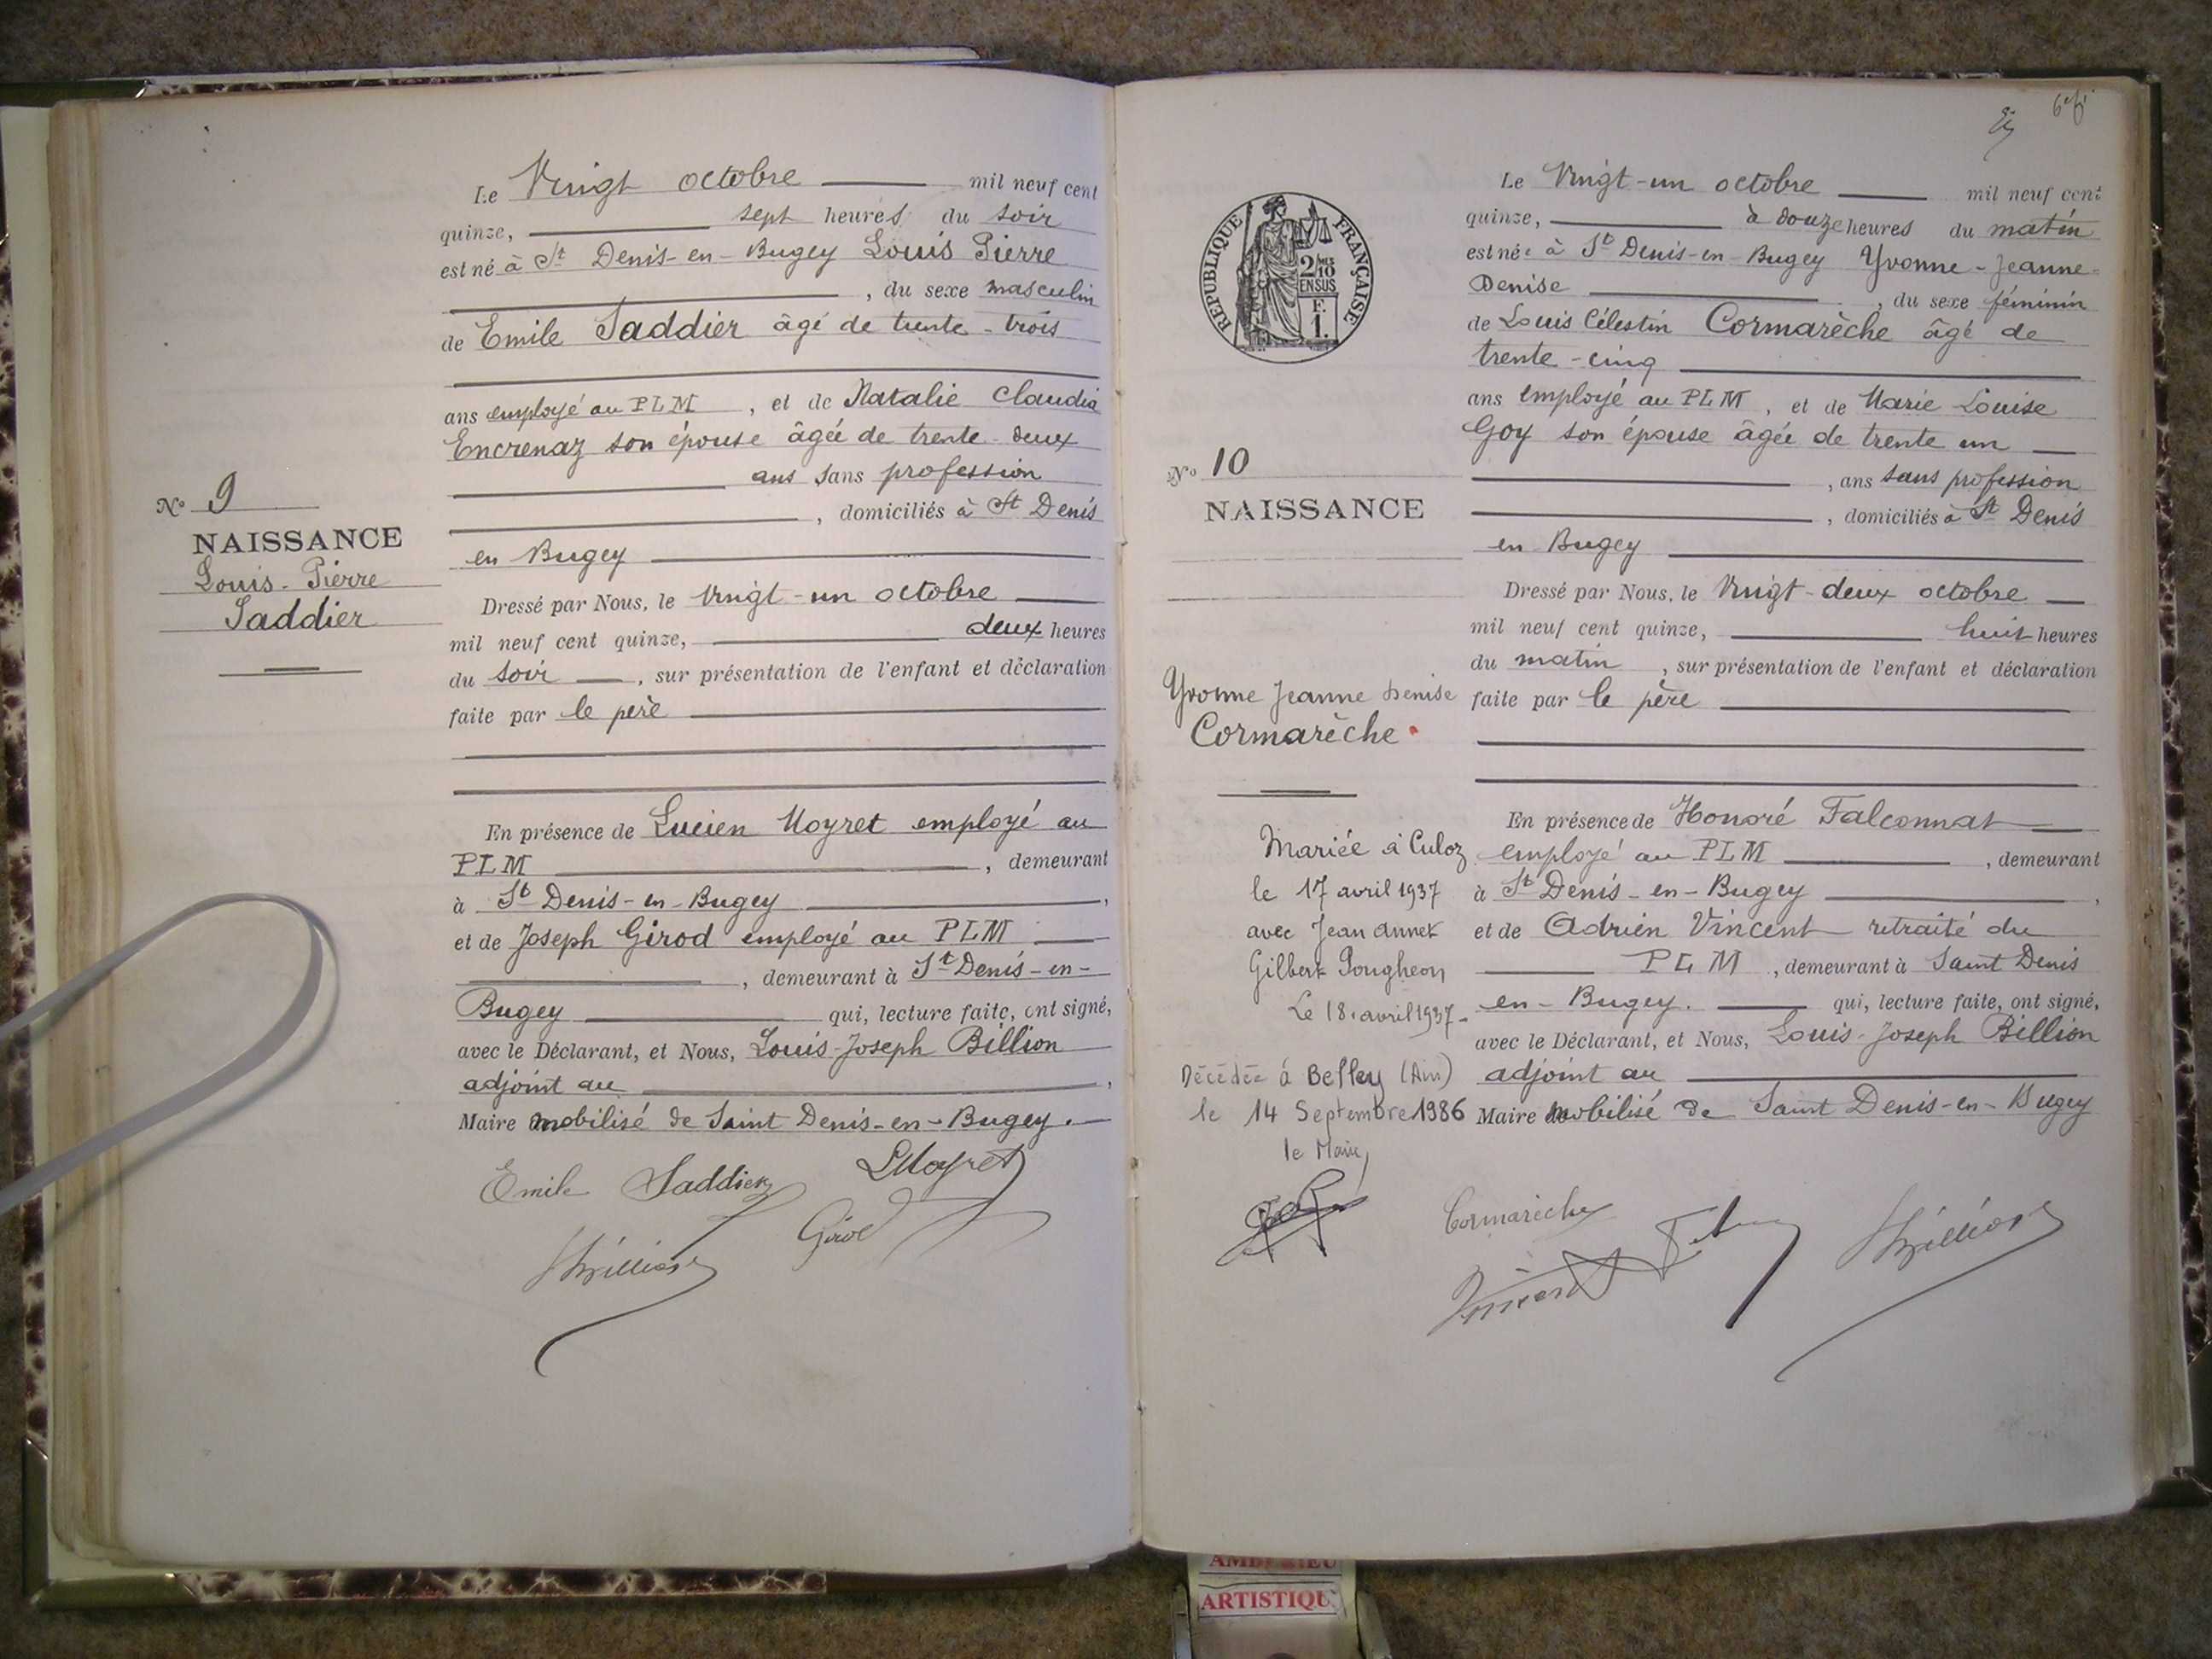 Le Vingt octobre mil neuf cent
quinze, sept heures du soir
est né à St Denis-en-Bugey Louis Pierre
, du sexe masculin
de Emile Saddier âgé de trente-trois
ans employé au PLM, et de Natalie Claudia
Encrenaz son épouse âgée de trente-deux
ans sans profession
, domiciliés à St Denis
en Bugey
Dressé par Nous, le vingt-un octobre
mil neuf cent quinze, deux heures
du soir, sur présentation de l'enfant et déclaration
faite par le père
En présence de Lucien Moyret employé au
PLM, demeurant
à St Denis-en-Bugey,
et de Joseph Girod employé au PLM
, demeurant à St Denis-en-
Bugey qui, lecture faite, ont signé,
avec le Déclarant, et Nous, Louis-Joseph Billion
adjoint au,
Maire mobilisé de Saint Denis-en-Bugey.
Emile Saddier LMoyret
Girod
Billion
No 9
NAISSANCE
Louis-Pierre
Saddier
Le Vingt-un octobre mil neuf cent
quinze, à douze heures du matin
est née à St Denis-en-Bugey Yvonne-Jeanne-
Denise, du sexe féminin
de Louis Célestin Cormarèche âgé de
trente-cinq
ans employé au PLM, et de Marie Louise
Goy son épouse âgée de trente un
, ans sans profession
, domiciliés à St Denis
en Bugey
Dressé par Nous, le Vingt-deux octobre
mil neuf cent quinze, huit heures
du matin, sur présentation de l'enfant et déclaration
faite par le père
En présence de Honoré Falconnat
employé au PLM, demeurant
à St Denis-en-Bugey,
et de Adrien Vincent retraité du
PLM, demeurant à Saint Denis
en-Bugey. qui, lecture faite, ont signé,
avec le Déclarant, et Nous, Louis-Joseph Billion
adjoint au
Maire mobilisé de Saint Denis-en-Bugey
Cormarèche
Vincent Billion
RÉPUBLIQUE FRANÇAISE
2/10 EN SUS
F.
1.
No 10
NAISSANCE
Yvonne Jeanne Denise
Cormarèche
Mariée à Culoz
le 17 avril 1937
avec Jean Annet
Gilbert Pougheon
Le 18 avril 1937-
Décédée à Belley (Ain)
le 14 Septembre 1986
le Maire,
ARTISTIQU